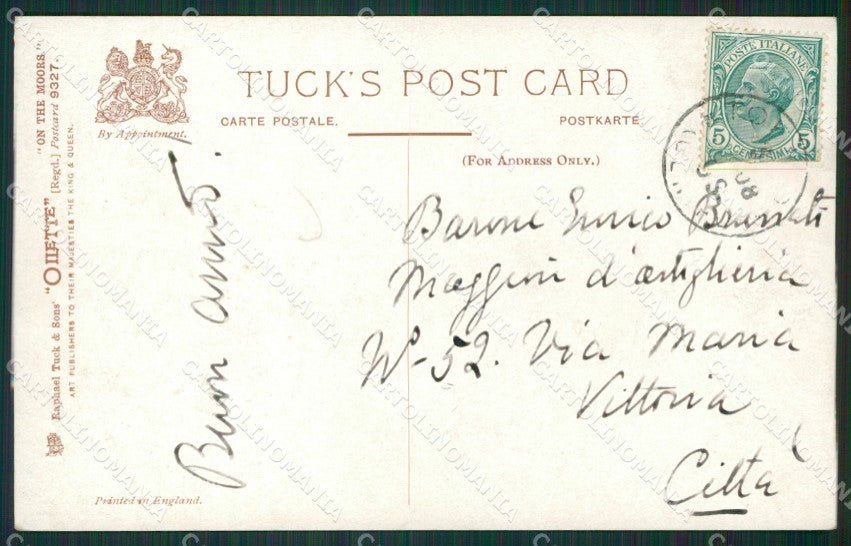 "ON THE MOORS."
Raphael Tuck & Sons' "OILETTE" [Regd.] Postcard 9327.
ART PUBLISHERS TO THEIR MAJESTIES THE KING & QUEEN.
By Appointment.
TUCK'S POST CARD
CARTE POSTALE. POSTKARTE
(FOR ADDRESS ONLY.)
POSTE ITALIANE
5 CENTESIMI 5
08
Buon anno!
Barone Enrico Brussati
Maggiore d'artiglieria
No 52. Via Maria
Vittoria
Città
Printed in England.
CARTOLINOMANIA